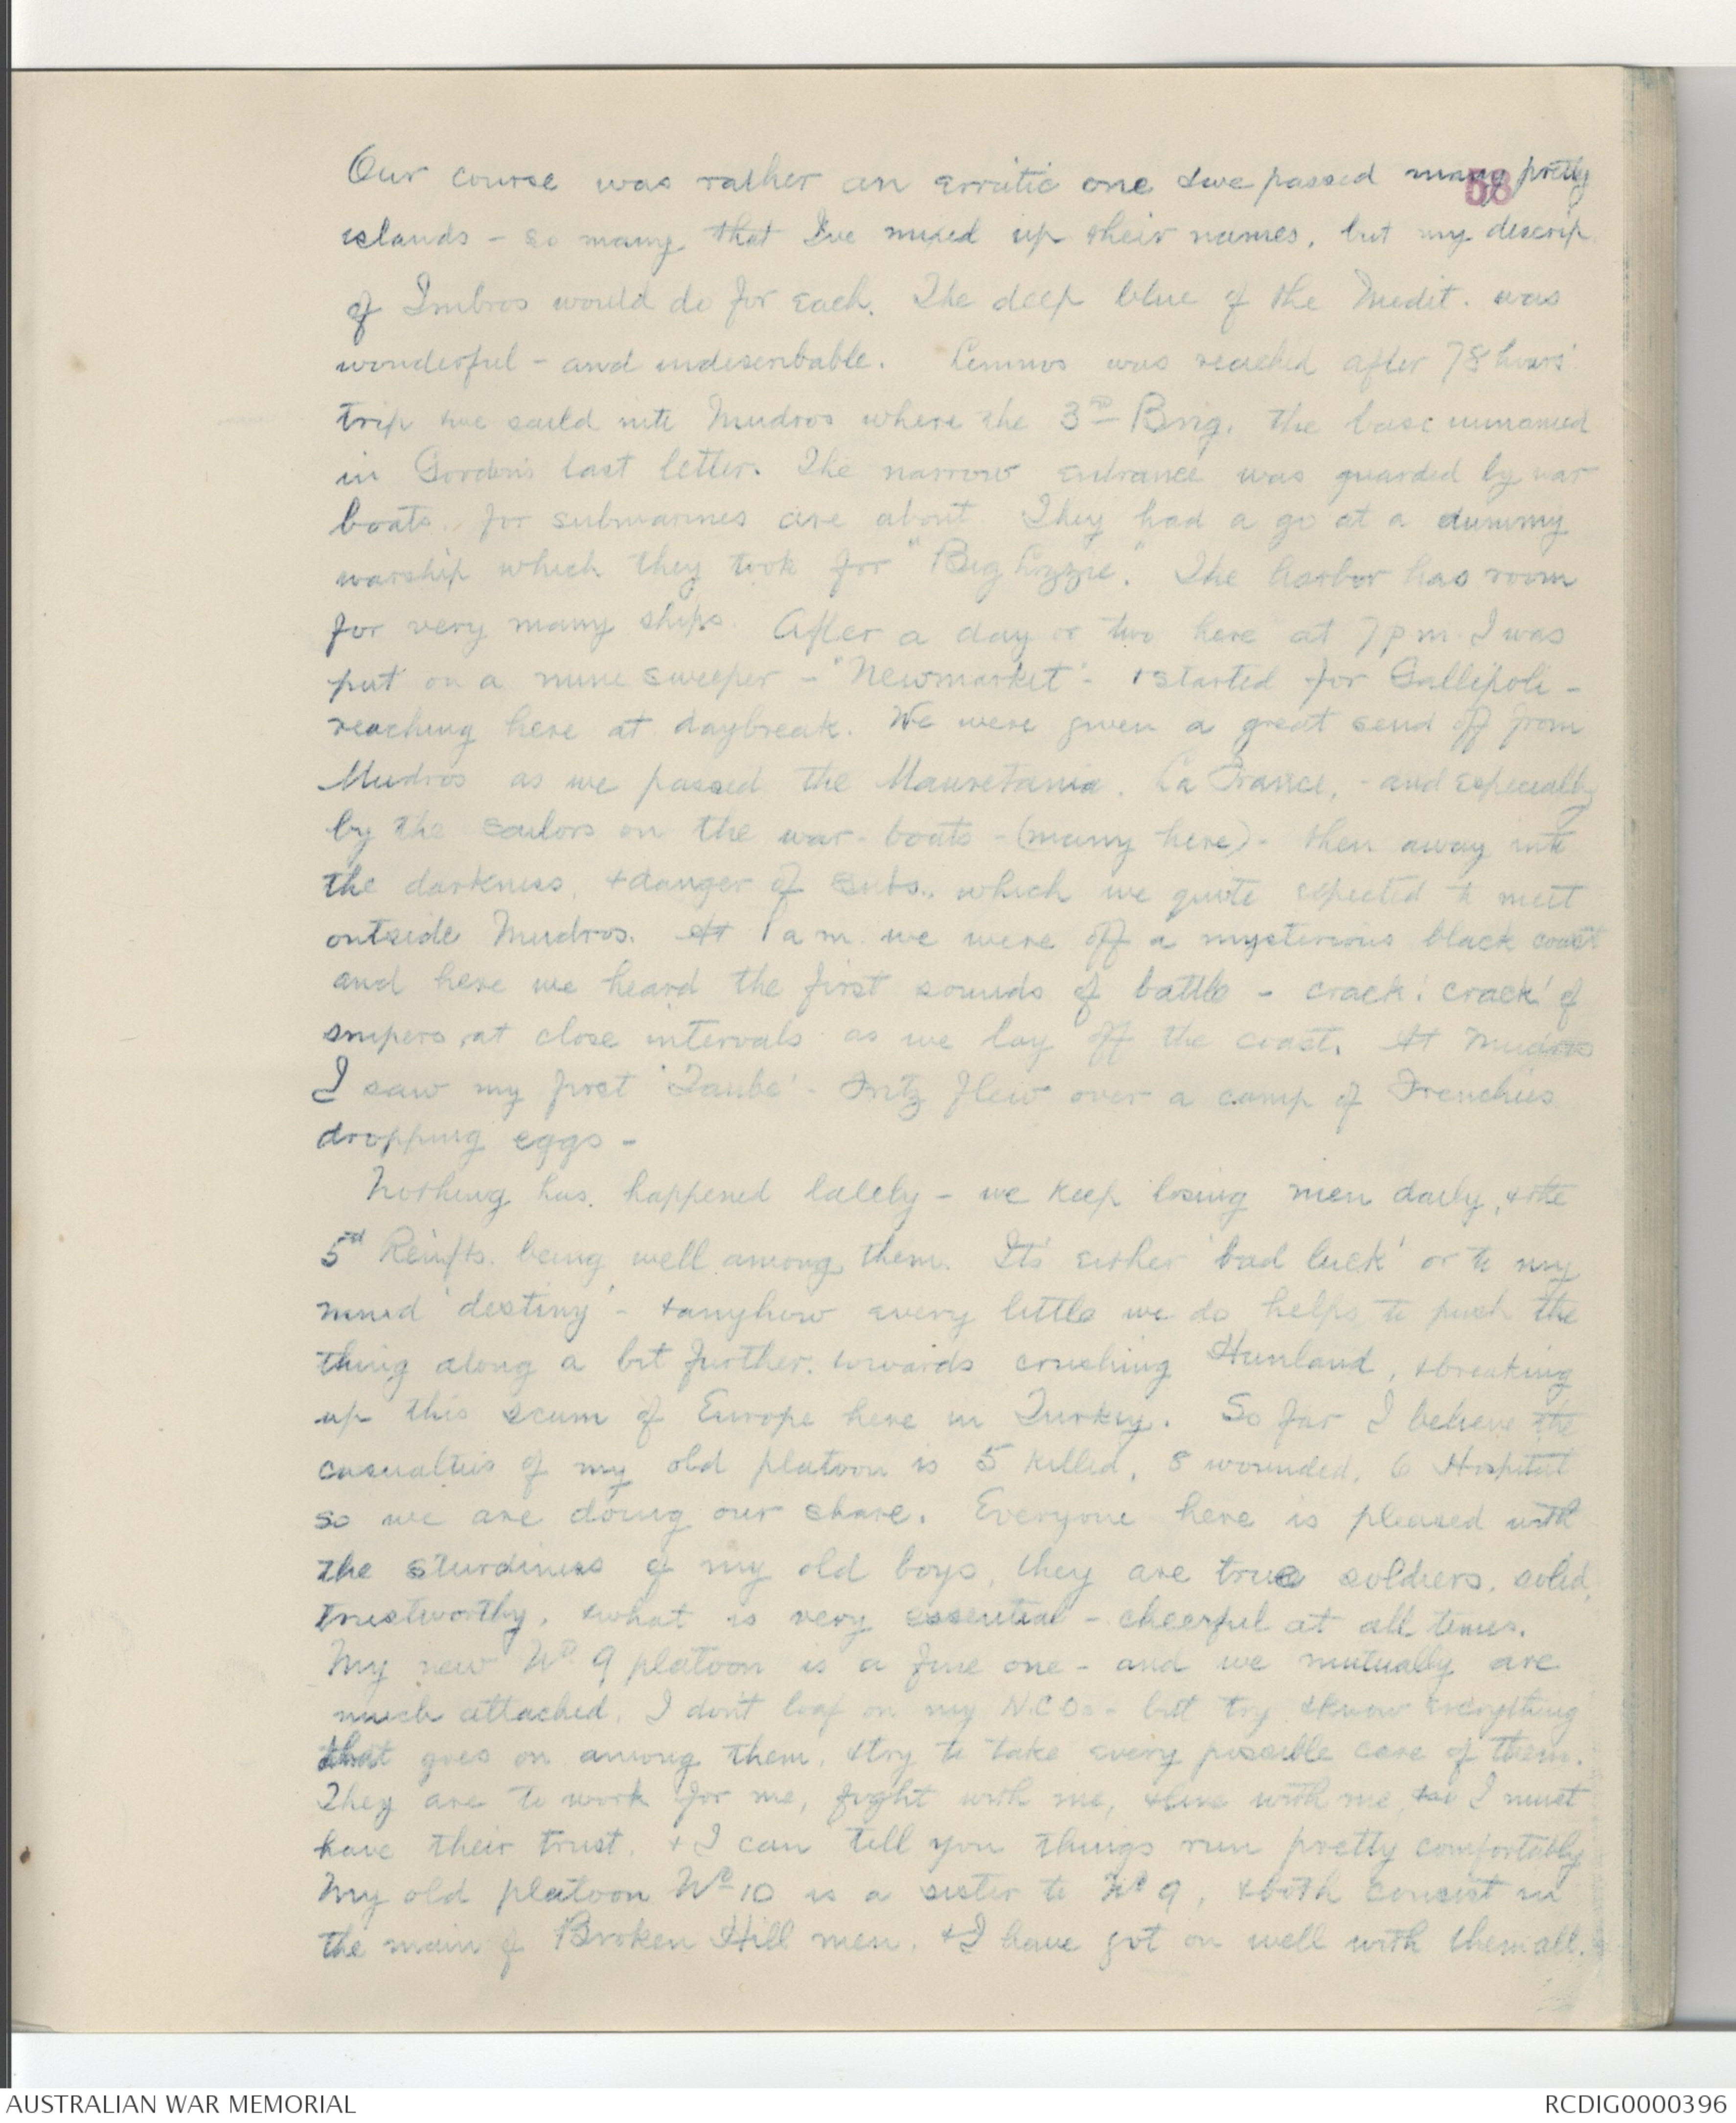 58
Our course was rather an erratic one & we passed many pretty
islands - so many that I've mixed up their names, but my descrip.
of Imbros would do for each. The deep blue of the Medit. was
wonderful - and indescribable. Lemnos was reached after 78 hours'
trip & we saild into Mudros where the 3rd Brig. the base unnamed
in Gordon's last letter. The narrow entrance was guarded by war
boats, for submarines are about. They had a go at a dummy
warship which they took for "Big Lizzie". The harbor has room
for very many ships. After a day or two here at 7 pm I was
put on a mine sweeper - "Newmarket" - & started for Gallipoli -
reaching here at daybreak. We were given a great send off from
Mudros as we passed the Mauretania, La France, - and especially
by the sailors on the war-boats - (many here) - then away into
the darkness, & danger of subs., which we quite expected to meet
outside Mudros. At 1 am we were off a mysterious black coast
and here we heard the first sounds of battle - crack! crack! of
snipers, at close intervals as we lay off the coast. At Mudros
I saw my first 'Taube' - Fritz flew over a camp of Frenchies
dropping eggs -
Nothing has happened lately - we keep losing men daily, & the
5th Reinfts. being well among them. It's either 'bad luck' or to my
mind 'destiny' - & anyhow every little we do helps to push the
thing along a bit further towards crushing Hunland, & breaking
up this scum of Europe here in Turkey. So far I believe the
casualties of my old platoon is 5 killed, 8 wounded, 6 Hospital
so we are doing our share. Everyone here is pleased with
the sturdiness of my old boys, they are true soldiers, solid,
trustworthy, & what is very essential - cheerful at all times.
My new No 9 platoon is a fine one - and we mutually are
much attached. I don't loaf on my N.C.Os - but try & know everything
that goes on among them, & try to take every possible care of them.
They are to work for me, fight with me, & live with me, & so I must
have their trust, & I can tell you things run pretty comfortably
My old platoon No 10 is a sister to No 9, & both consist in
the main of Broken Hill men, & I have got on well with them all.
AUSTRALIAN WAR MEMORIAL
RCDIG0000396